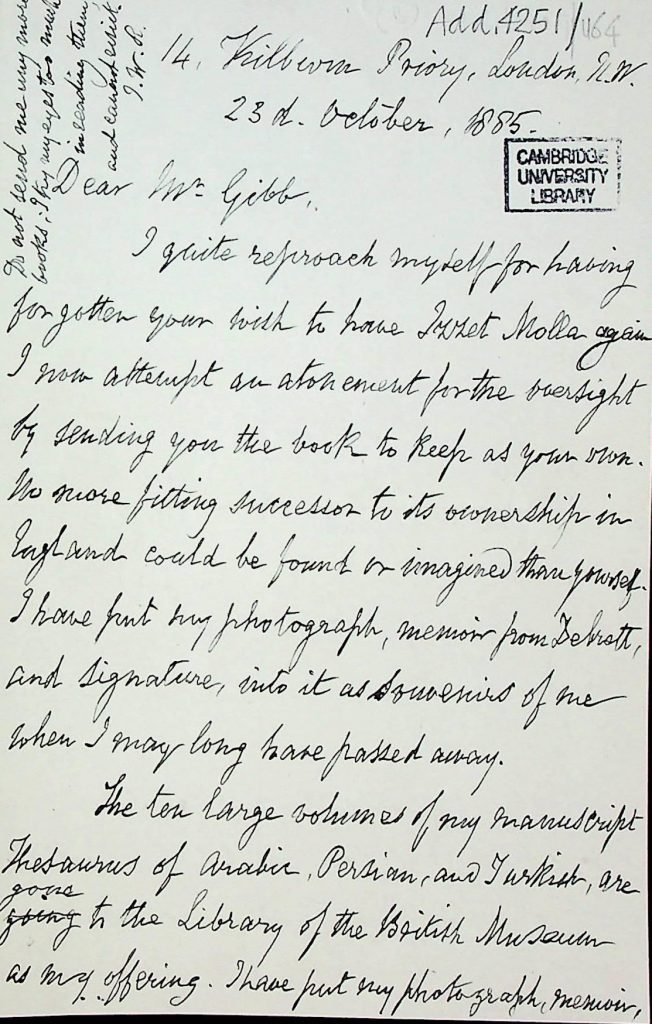 Add. 4251/464
14, Kilburn Priory, London, N.W.
23d. October, 1885.
CAMBRIDGE
UNIVERSITY
LIBRARY
Dear Mr Gibb,
I quite reproach myself for having
forgotten your wish to have Izzet Molla again
I now attempt an atonement for the oversight
by sending you the book to keep as your own.
No more fitting successor to its ownership in
England could be found or imagined than yourself.
I have put my photograph, memoir from Debrett,
and signature, into it as souvenirs of me
when I may long have passed away.
The ten large volumes of my manuscript
Thesaurus of Arabic, Persian, and Turkish, are
gone
going to the Library of the British Museum
as my offering. I have put my photograph, memoir,
Do not send me any more
books; I try my eyes too much
in reading them
and cannot resist
J. W. R.